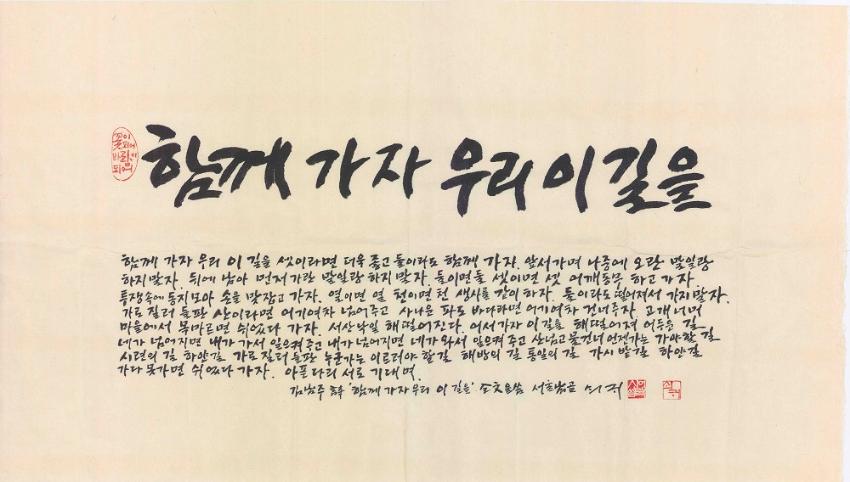 함께 가자 우리 이 길을
함께 가자 우리 이 길을 셋이라면 더욱 좋고 둘이라도 함께 가자. 앞서가며 나중에 오란 말일랑
하지 말자. 뒤에 남아 먼저 가란 말일랑 하지 말자. 둘이면 둘 셋이면 셋 어깨동무 하고 가자.
투쟁속에 동지 모아 손을 맞잡고 가자. 열이면 열 천이면 천 생사를 같이 하자. 둘이라도 떨어져서 가지 말자.
가로 질러 들판 산이라면 어기여차 넘어주고 사나운 파도 바다라면 어기여차 건너주자. 고개 너머
마을에서 목마르면 쉬었다 가자. 서산낙일 해 떨어진다. 어서가자 이 길을 해 떨어져 어두운 길
네가 넘어지면 내가 가서 일으켜 주고 내가 넘어지면 네가 와서 일으켜 주고 산 넘고 물건너 언젠가는 가야할 길
시련의 길 하얀 길 가로 질러 들판 누군가는 이르러야 할 길 해방의 길 통일의 길 가시밭길 하얀길
가다 못가면 쉬었다 가자. 아픈 다리 서로 기대며.
김남주 '함께 가자 우리 이 길을'